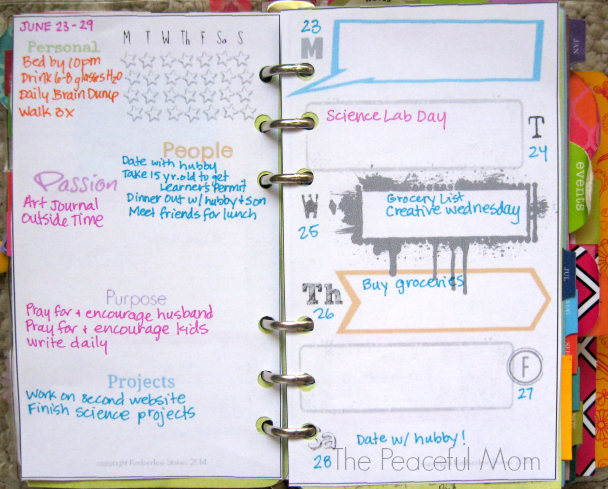 JUNE 23-29
Personal
M T W Th F Sa S
Bed by 10pm
Drink 6-8 glasses H2O
Daily Brain Dump
Walk 3x
People
Date with hubby
Take 15 yr. old to get
Learner's Permit
Dinner Out w/ hubby & son
Meet friends for lunch
Passion
Art Journal
Outside Time
Purpose
Pray for + encourage husband
Pray for + encourage kids
write daily
Projects
Work on second website
Finish science projects
copyright Kimberlee Stokes 2014
23
M
Science Lab Day
T
24
W
25
Grocery List
Creative Wednesday
Th
26
Buy groceries
F
27
Sa
28
Date w/ hubby!
The Peaceful Mom
JAN
events
JUL